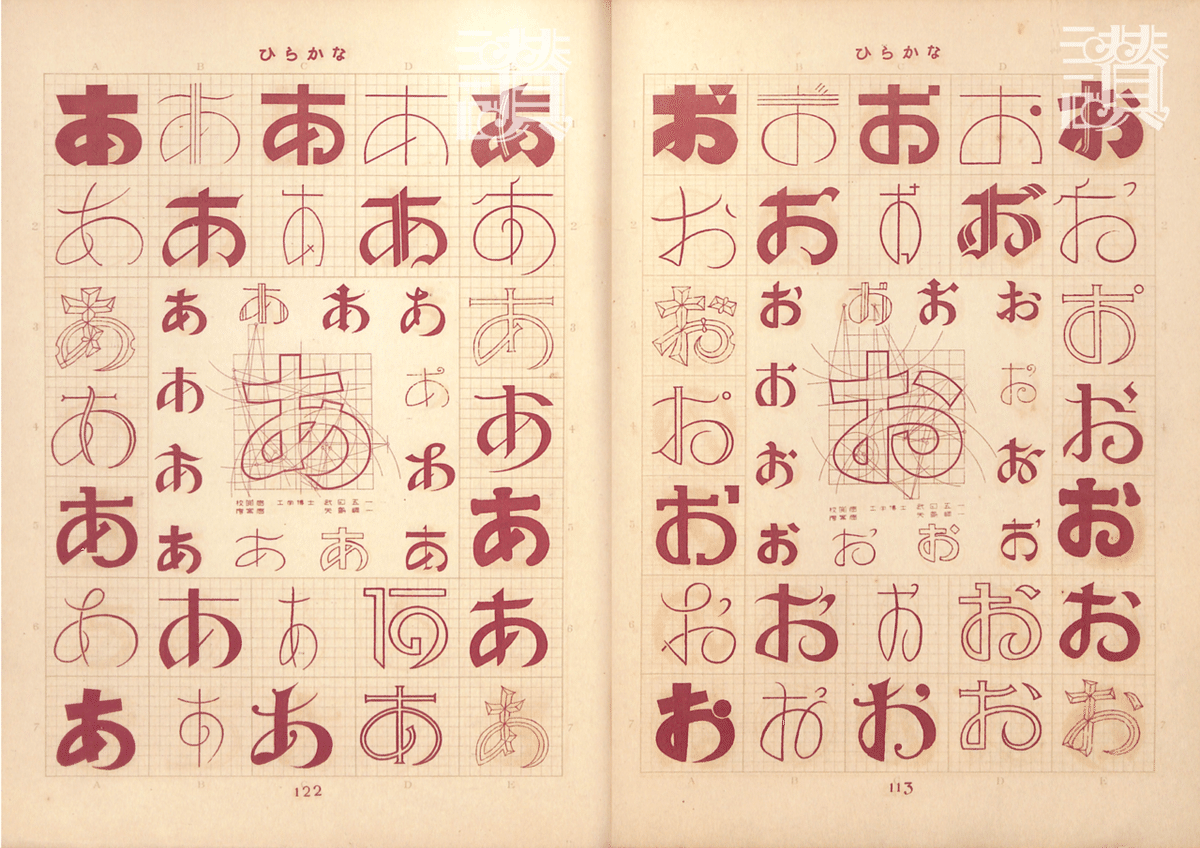 ひらかな
A B C D E
あ あ あ あ あ
あ あ あ あ あ
あ あ あ あ あ あ
あ あ あ
あ あ あ あ
工学博士 武田五一
あ あ あ あ あ あ
あ あ あ あ あ
あ あ あ あ あ
A B C D E
122
ひらかな
A B C D
お お お お お
お お お お お
お お お お お お
お お お
お お お お
工学博士 武田五一
お お お お お お
お お お お お
お お お お お
A B C D E
113
讃